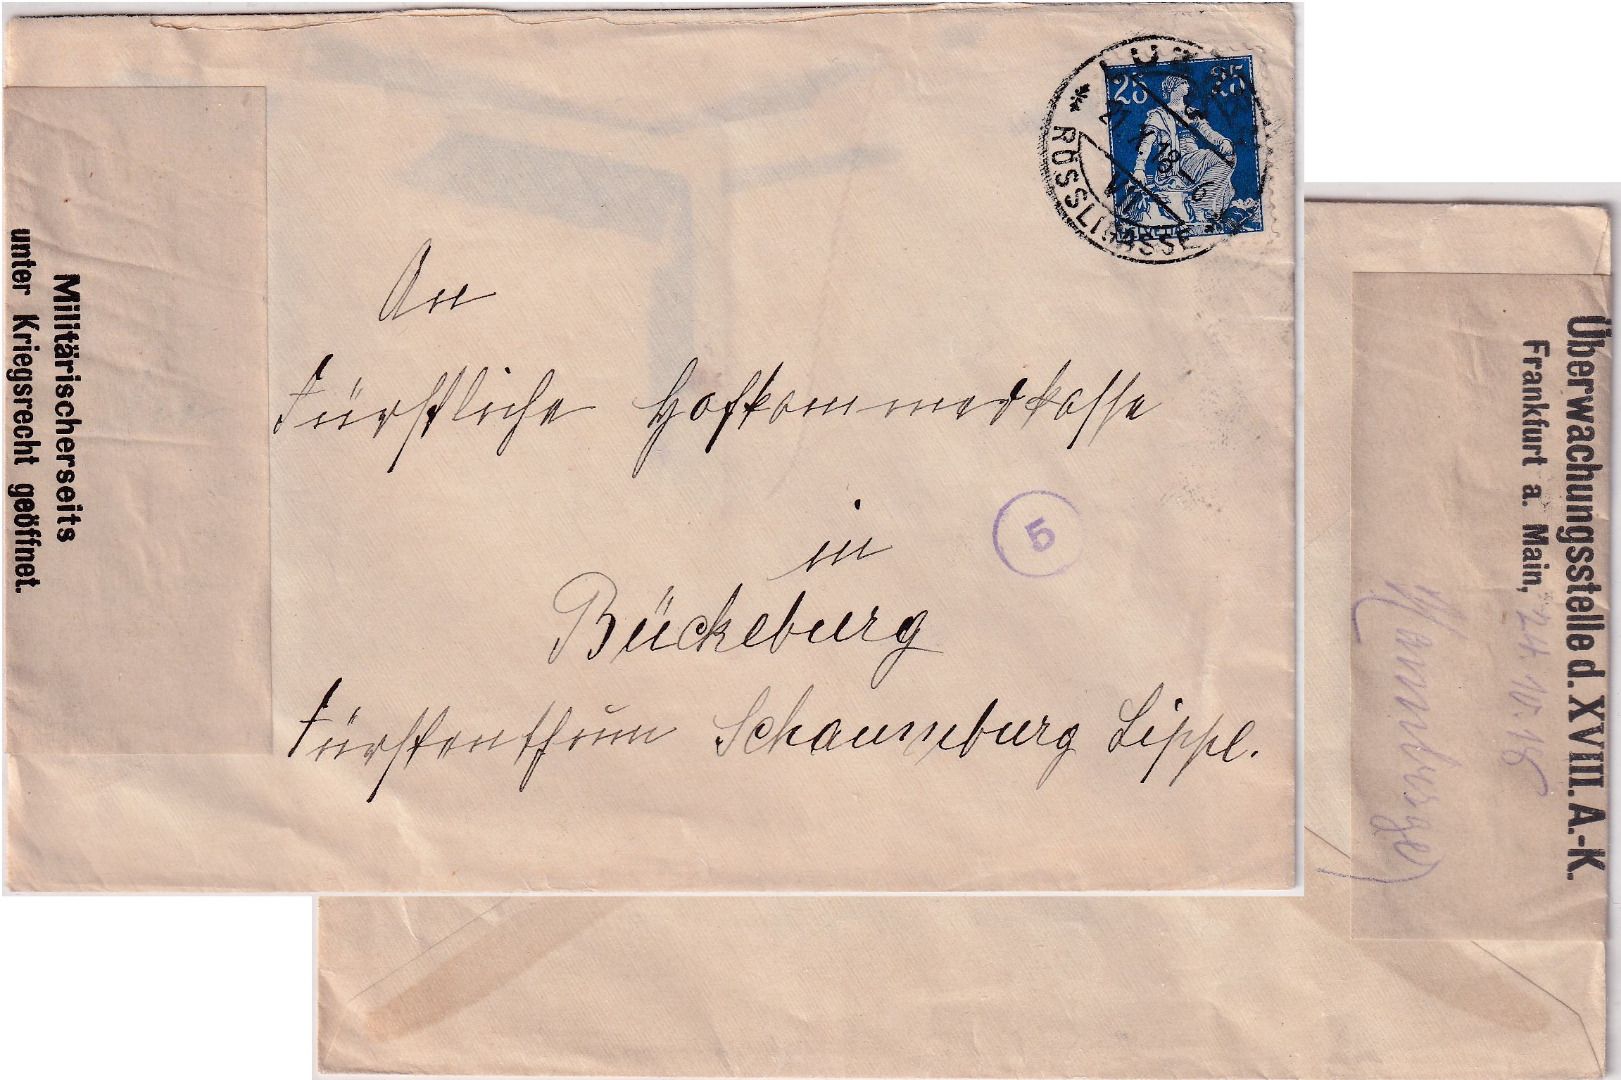 Militärischerseits
unter Kriegsrecht geöffnet.
LUZERN
25 25
21.X.18-6
VII
RÖSSLIGASSE
An
Fürstliche Hofkammerkasse
in
5
Bückeburg
Fürstenthum Schaumburg Lippe.
Überwachungsstelle d. XVIII. A.-K.
Frankfurt a. Main, 24.10.18